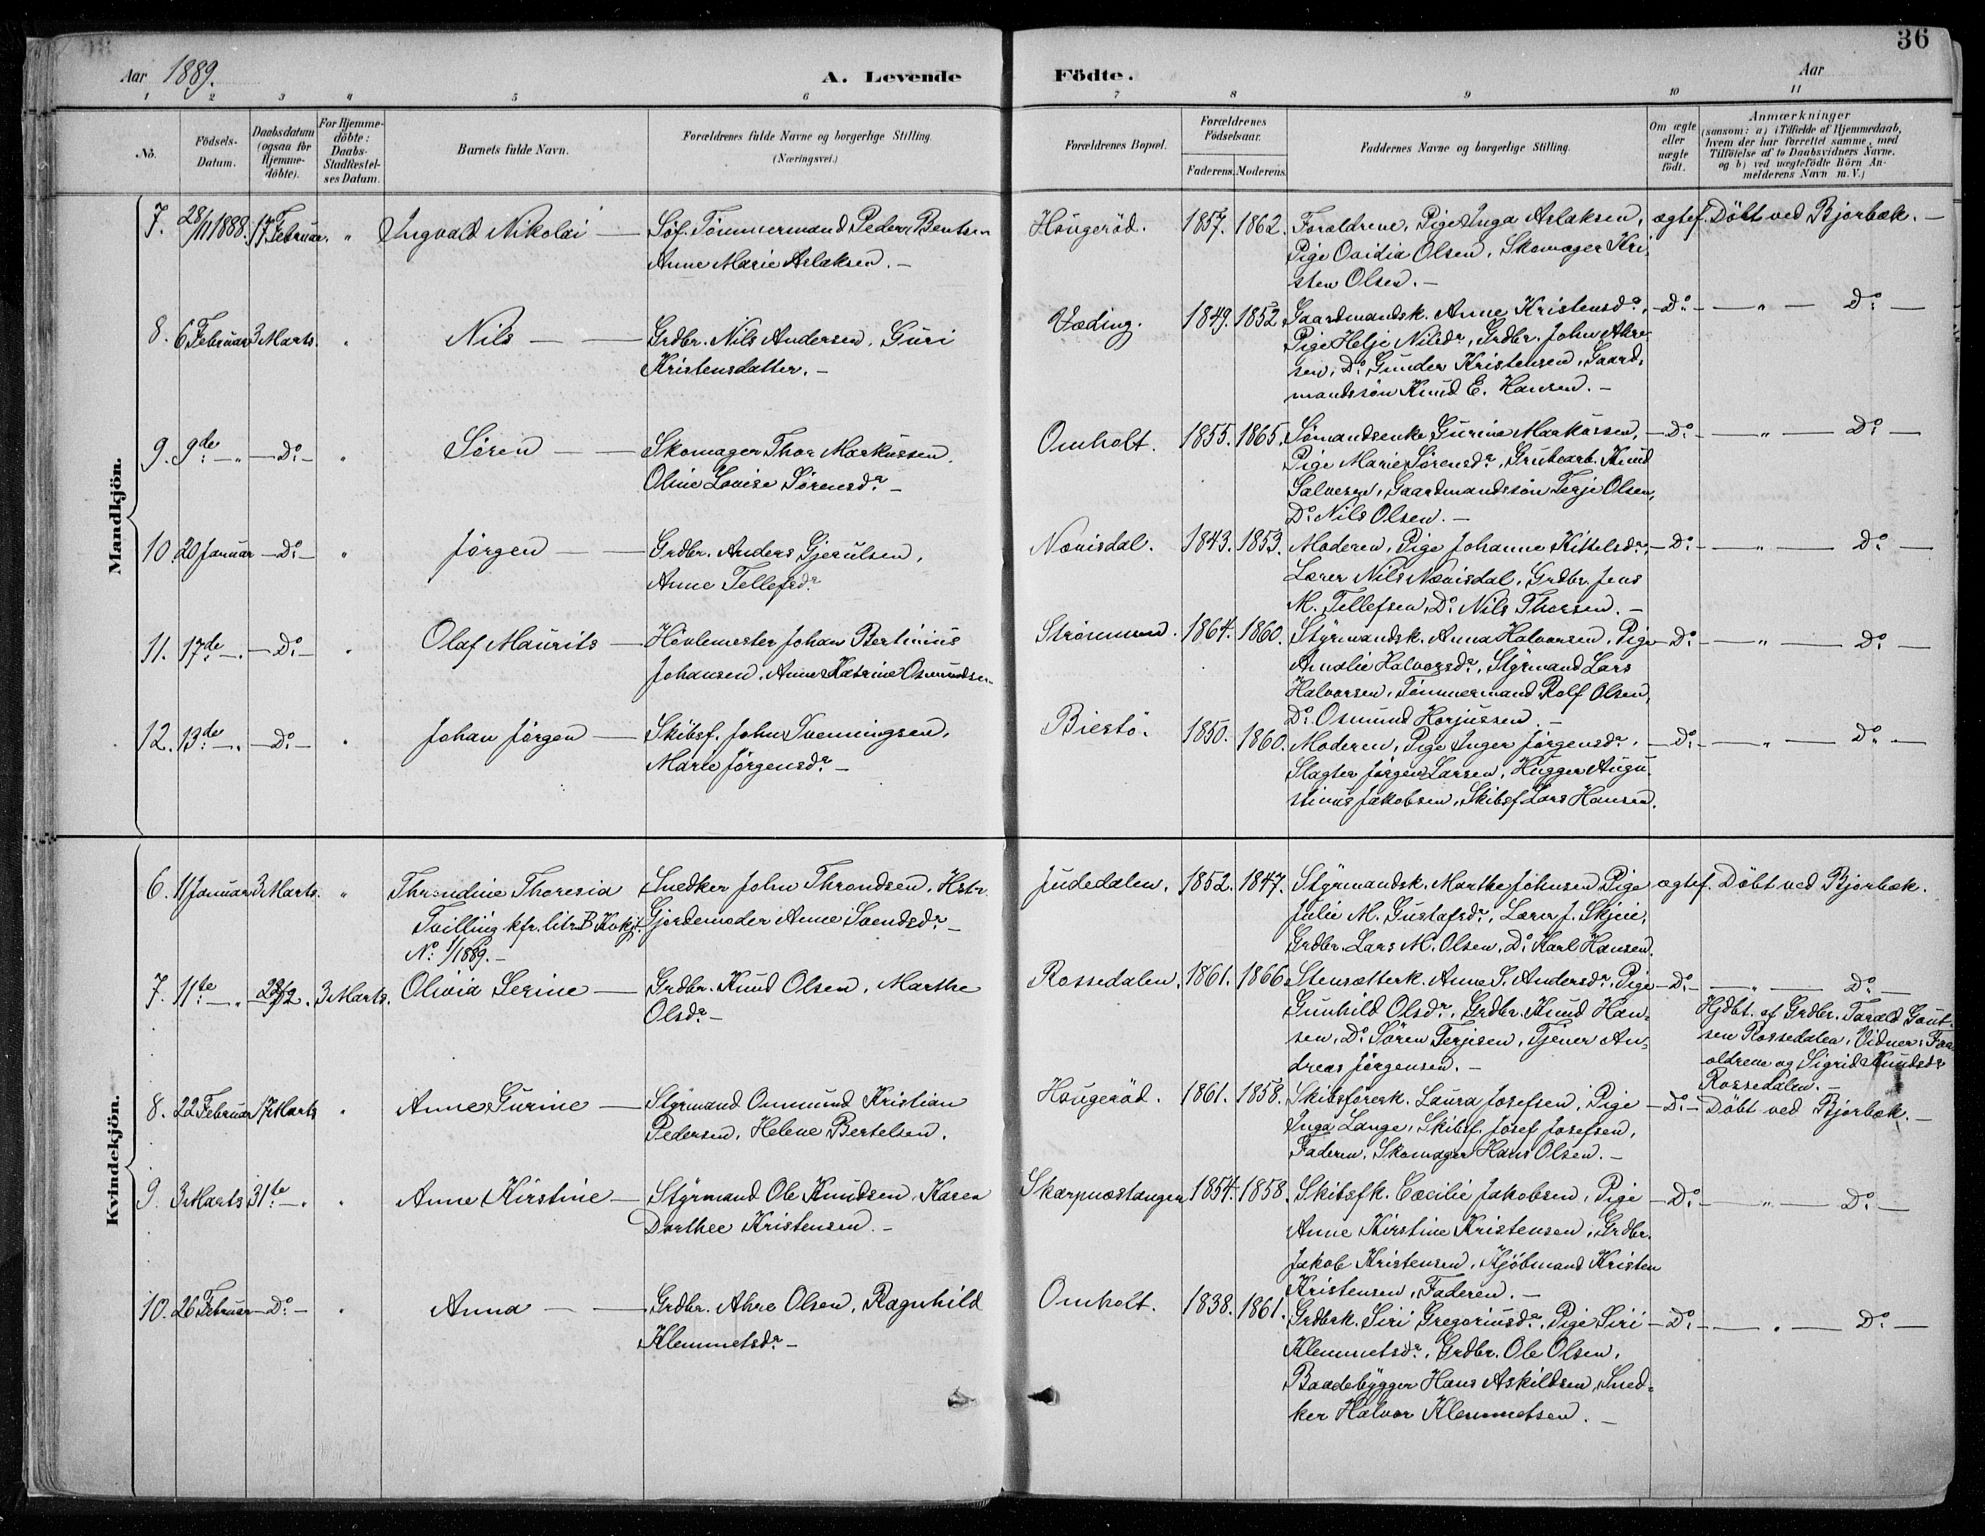 36
Aar 1889.
A. Levende
Födte.
Aar
1 2 3 4 5 6 7 8 9 10 11
No.
Födsels-Datum.
Daabsdatum (ogsaa for Hjemme-döbte).
For Hjemme-döbte: Daabs-Stadfæstel-ses Datum.
Barnets fulde Navn.
Forældrenes fulde Navne og borgerlige Stilling.
(Næringsvei.)
Forældrenes Bopæl.
Forældrenes Födselsaar.
Faderens. Moderens.
Faddernes Navne og borgerlige Stilling.
Om ægte eller uægte födt.
Anmærkninger
(saasom: a) i Tilfælde af Hjemmedaab,
hvem der har forrettet samme, med
Tilföielse af to Daabsvidners Navne,
og b) ved uægtefödte Börn An-
melderens Navn m. V.)
Mandkjön.
7. 28/11 1888. 17 Februar. " Ingvald Nikolai — Söf. Tömmermand Peder Bentsen
Anne Marie Aslaksen. —
Hougeröd. 1857. 1862. Forældrene, Pige Inga Aslaksen,
Pige Ovidia Olsen, Skomager Kri-
sten Olsen. —
ægtef. Döbt ved Bjorbæk. —
8. 6 Februar 3 Marts. " Nils — — Grdbr. Nils Andersen, Guri
Kristensdatter. —
Væding. 1849. 1852. Gaardmandsk. Anne Kristensda.,
Pige Helje Nilsda, Grdbr. John Ahre-
sen, Do. Gunder Kristensen, Gaard-
mandssön Knud E. Hansen. —
— Do. — — " — Do. —
9. 9de — " — Do. — " Sören — — Skomager Thor Markussen,
Oline Lovise Sörensda. —
Omholt. 1855. 1865. Sömandsenke Gurine Markussen,
Pige Marie Sörensda., Grubearb. Knud
Salvesen, Gaardmandssön Terje Olsen,
Do. Nils Olsen. —
— Do. — — " — Do. —
10. 20 Januar — Do. — " Jörgen — — Grdbr. Anders Gjerulsen,
Anne Tellefsda.
Nævisdal. 1843. 1853. Moderen, Pige Johanne Kittelsda.,
Lærer Nils Nævisdal, Grdbr. Jens
M. Tellefsen, Do. Nils Thorsen. —
— Do. — — " — Do. —
11. 17de — " — Do. — " Olaf Maurits — Hövlemester Johan Bertinius
Johansen, Anne Katrine Osmundsen
Strömmen. 1864. 1860. Styrmandsk. Anna Halvorsen, Pige
Amalie Halvorsda., Styrmand Lars
Halvorsen, Tömmermand Rolf Olsen,
Do. Osmund Horjussen. —
— Do. — — " — Do. —
12. 13de — " — Do. — " Johan Jörgen — Skibsf. John Svenningsen,
Marie Jörgensda. —
Biestö. 1850. 1860. Moderen, Pige Inger Jörgensda.,
Slagter Jörgen Larsen, Hugger Augu-
stinus Jakobsen, Skibsf. Lars Hansen.
— Do. — — " — Do. —
Kvindekjön.
6. 11 Januar 3 Marts. " Throndine Theresia
Tvilling kfr. litr. B Kvkj.
No. 1/1889. —
Snedker John Throndsen, Hstr.
Gjordemoder Anne Svendsda. —
Judedalen. 1852. 1847. Styrmandsk. Marthe Johnsen, Pige
Julie M. Gustafsda., Lærer J. Skjeie,
Grdbr. Lars M. Olsen, Do. Karl Hansen.
ægtef. Döbt ved Bjorbæk.
7. 11te — " 22/2. 3 Marts. Olivia Serine — Grdbr. Knud Olsen, Marthe
Olsda. —
Rossedalen. 1861. 1866. Stensætterk. Anne S. Andersda., Pige
Gunhild Olsda., Grdbr. Knud Han-
sen, Do. Sören Terjesen, Tjener An-
dreas Jörgensen. —
— Do. — — " — Do. —
Hjdbt. af Grdbr. Tarald Gaut-
sen Rossedalen, Vidner: For-
ældrene og Sigrid Knudsda
Rossedalen. —
8. 22 Februar 17 Marts " Anne Gurine — Styrmand Onmund Kristian
Pedersen, Helene Bertelsen.
Hougeröd. 1861. 1858. Skibsförerk. Laura Josefsen, Pige
Inga Lange, Skibsf. Josef Josefsen,
Faderen, Skomager Hans Olsen. —
— Do. — Döbt ved Bjorbæk. —
9. 3 Marts 31te — " " Anne Kirstine — Styrmand Ole Knudsen, Karen
Dorthee Kristensen. —
Skarpnæstangen 1854. 1858. Skibsfk. Cæcilie Jakobsen, Pige
Anne Kirstine Kristensen, Grdbr.
Jakob Kristensen, Kjöbmand Kristen
Kristensen, Faderen. —
— Do. — " — Do. —
10. 26 Februar — Do. — " Anna — — Grdbr. Ahre Olsen, Ragnhild
Klemmetsda. —
Omholt. 1838. 1861. Grdbrk. Siri Gregoriusda., Pige Siri
Klemmetsda., Grdbr. Ole Olsen,
Baadebygger Hans Askildsen, Sned-
ker Halvor Klemmetsen. —
— Do. — — " — Do. —